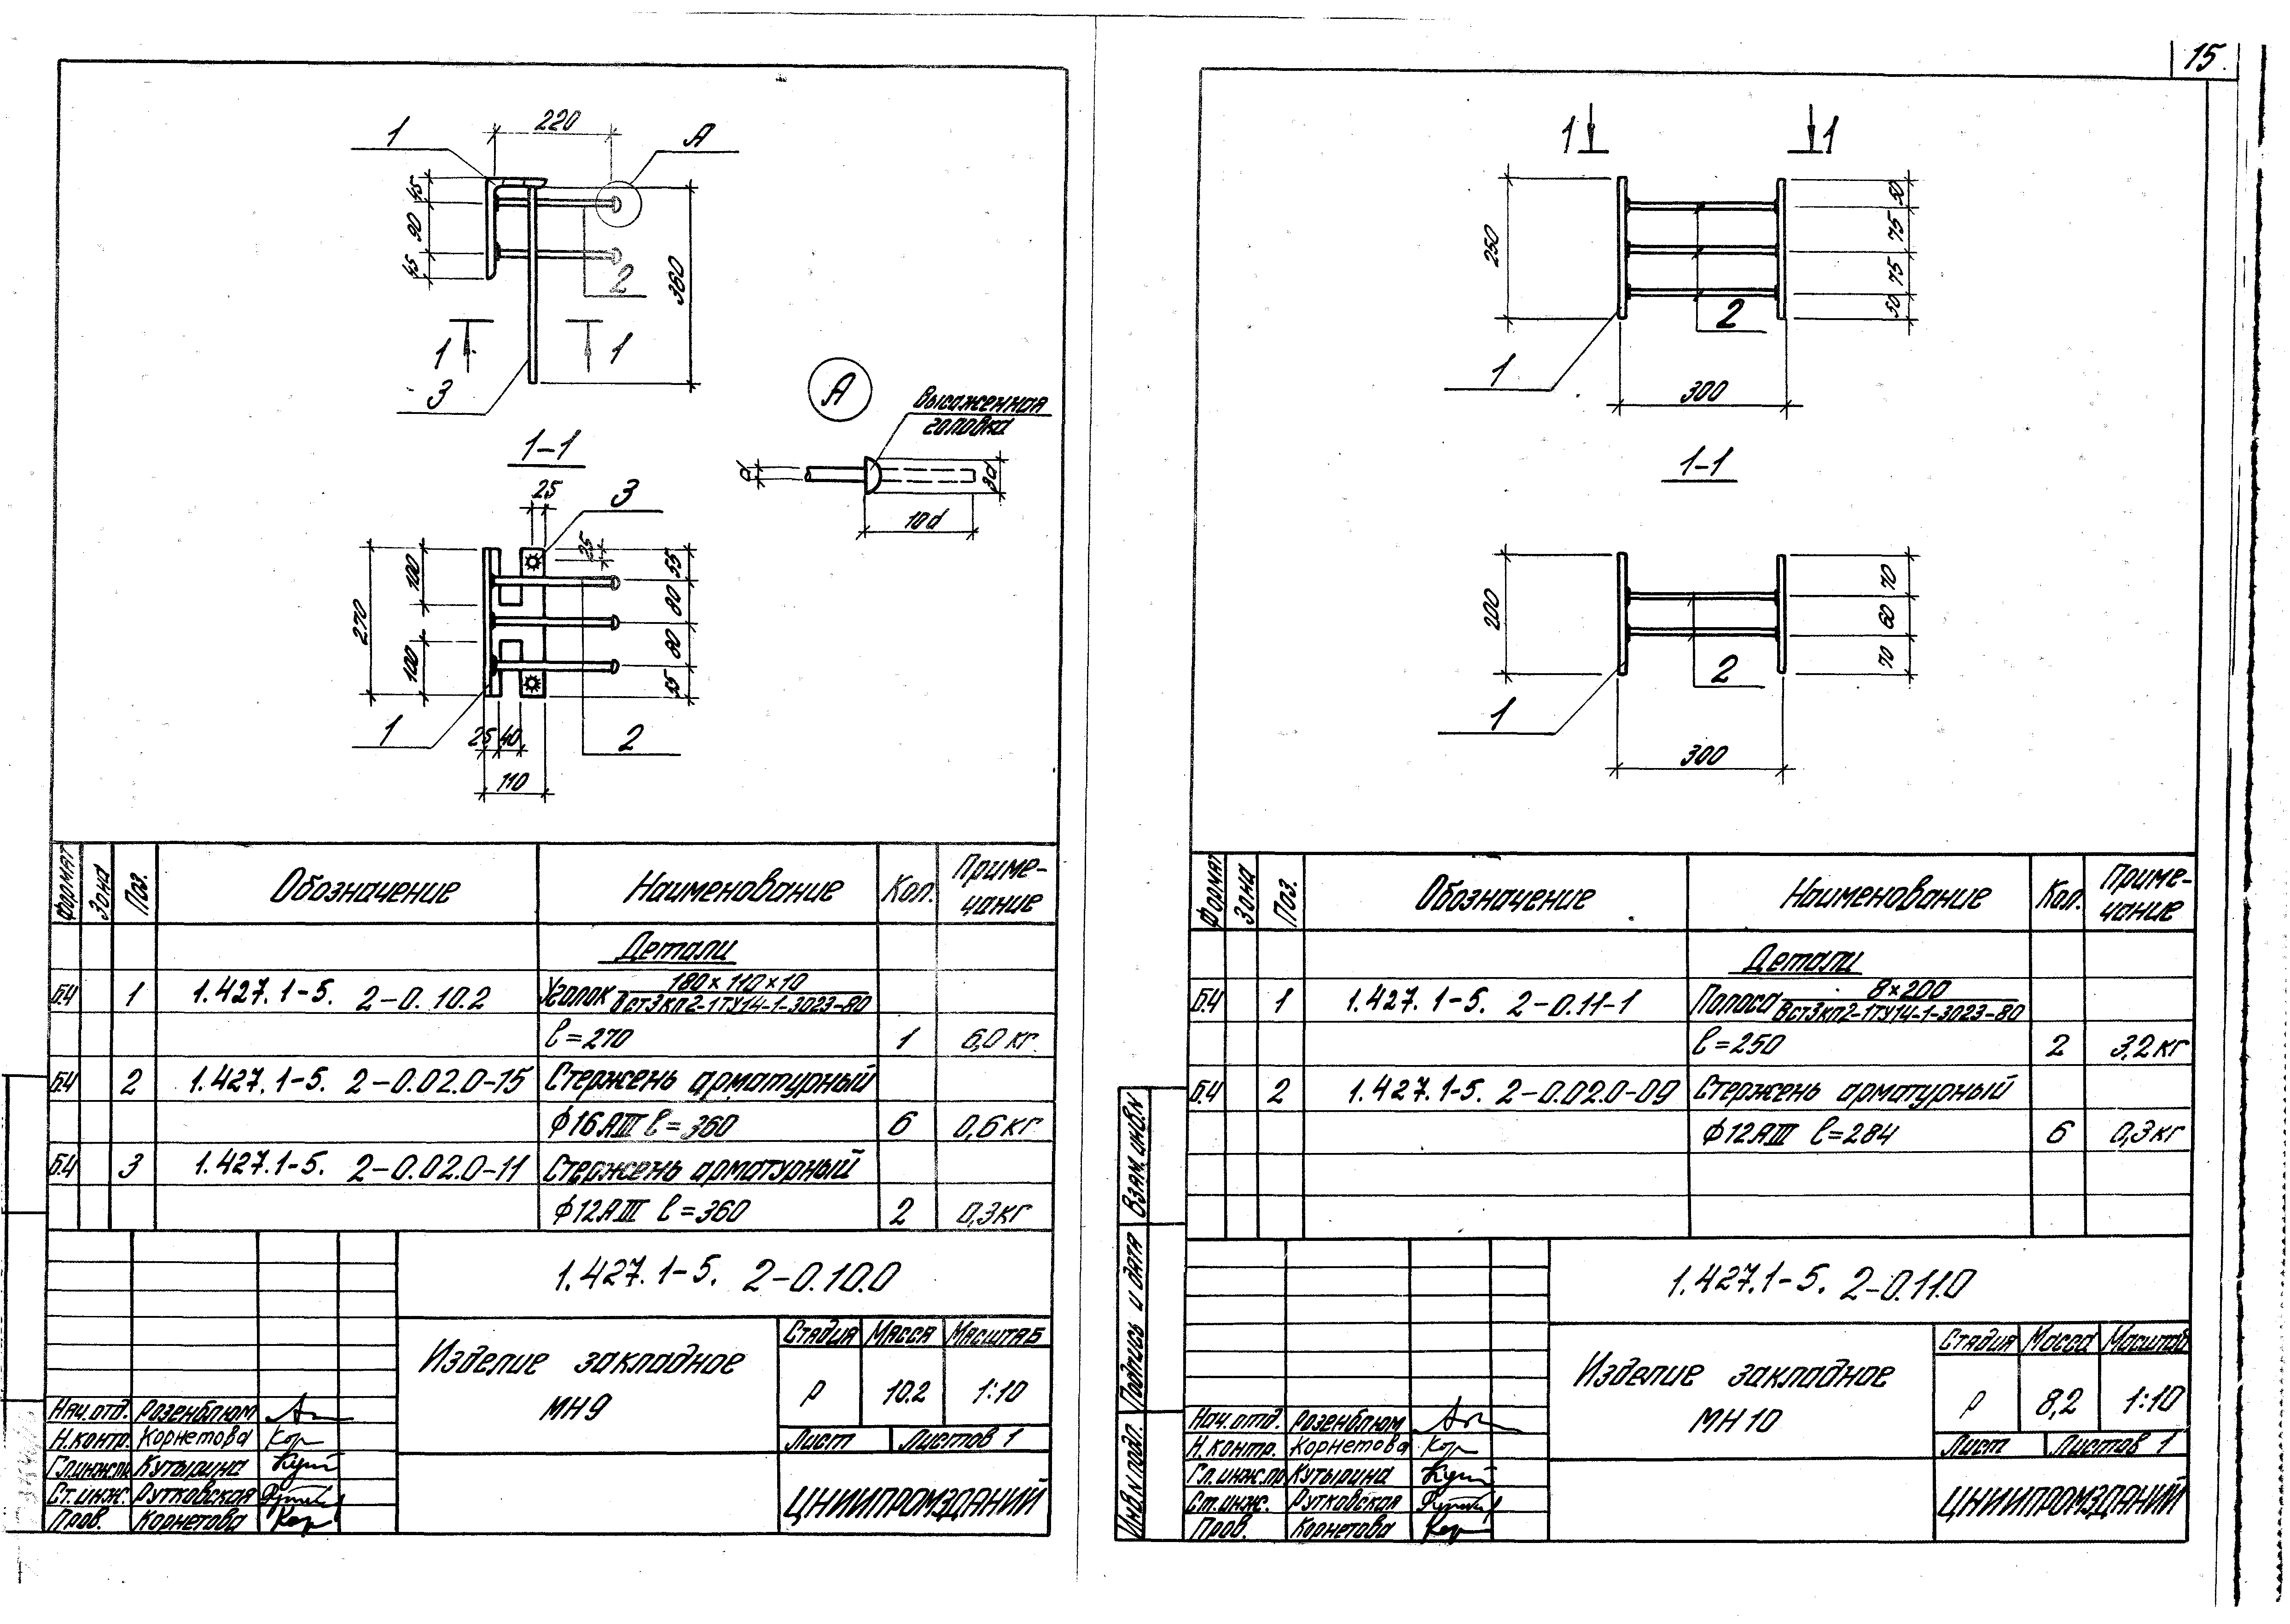 15
1
220
А
45
90
45
360
2
1
1
3
А
Высаженная
головка
d
3d
10d
1-1
25
3
25
270
100
100
55
80
80
55
1
25
40
2
110
Формат
Зона
Поз.
Обозначение
Наименование
Кол.
Приме-
чание
Детали
Б.Ч 1 1.427.1-5. 2-0.10.2 Уголок 180×110×10
ВСт3кп2-1ТУ14-1-3023-80
ℓ=270 1 6,0 кг
Б.Ч 2 1.427.1-5. 2-0.02.0-15 Стержень арматурный
ф16АIII ℓ=360 6 0,6 кг
Б.Ч 3 1.427.1-5. 2-0.02.0-11 Стержень арматурный
ф12АIII ℓ=360 2 0,3кг
1.427.1-5. 2-0.10.0
Изделие закладное
МН9
Стадия Масса Масштаб
Р 10.2 1:10
Лист Листов 1
Нач.отд. Розенблюм
Н.контр. Корнетова Кор
Гл.инж.пр Кутырина
Ст.инж. Рутковская
Пров. Корнетова Кор
ЦНИИПРОМЗДАНИЙ
1 1
250
50
75
75
50
2
1
300
1-1
200
70
60
70
2
1
300
Формат
Зона
Поз.
Обозначение
Наименование
Кол.
Приме-
чание
Детали
Б.Ч 1 1.427.1-5. 2-0.11-1 Полоса 8×200
ВСт3кп2-1ТУ14-1-3023-80
ℓ=250 2 3,2кг
Б.Ч 2 1.427.1-5. 2-0.02.0-09 Стержень арматурный
ф12АIII ℓ=284 6 0,3кг
1.427.1-5. 2-0.11.0
Изделие закладное
МН10
Стадия Масса Масштаб
Р 8,2 1:10
Лист Листов 1
Нач.отд. Розенблюм
Н.контр. Корнетова Кор
Гл.инж.пр Кутырина
Ст.инж. Рутковская
Пров. Корнетова Кор
ЦНИИПРОМЗДАНИЙ
Взам.инв.N
Подпись и дата
Инв.N подл.